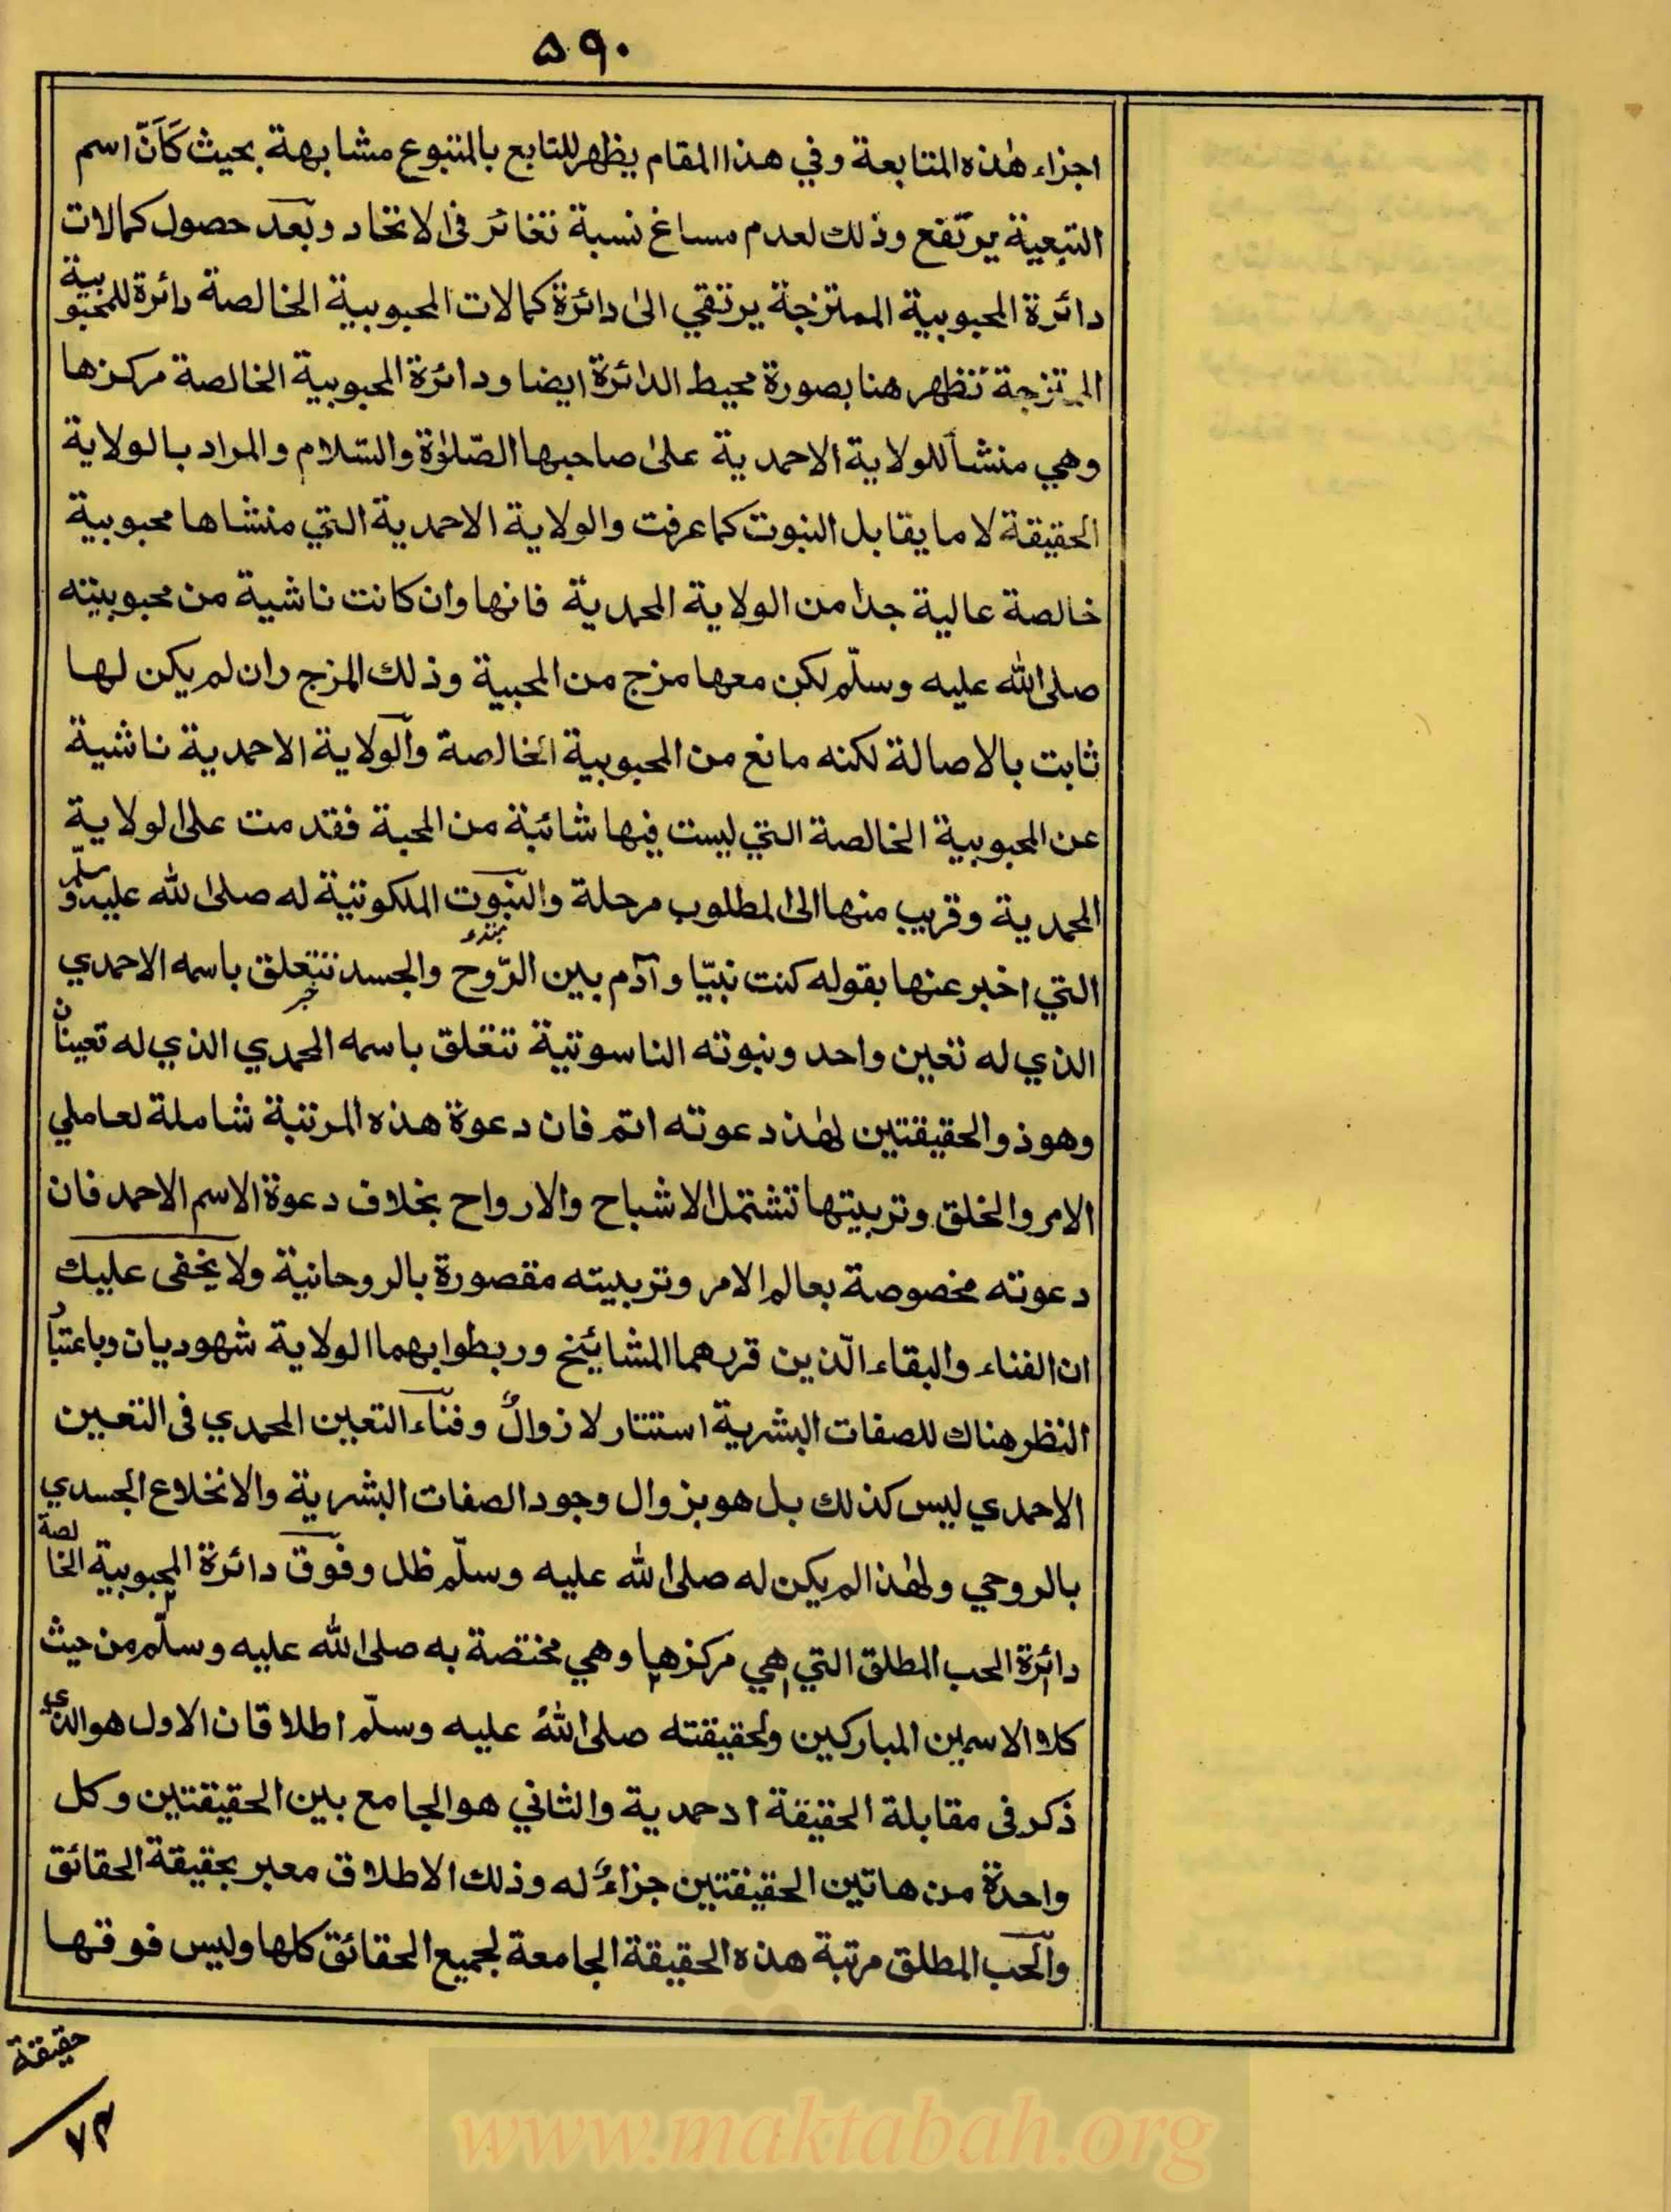 ٥٩٠
اجزاء هٰذه المتابعة وفي هذا المقام يظهر للتابع بالمتبوع مشابهة بحيث كَاَنَّ اسم
التبعية يرتفع وذلك لعدم مساغ نسبة تغائر فى الاتحاد وبعد حصول كمالات
دائرة المحبوبية الممتزجة يرتقي الى دائرة كمالات المحبوبية الخالصة دائرة للمحبوبية
الممتزجة تظهر هنا بصورة محيط الدائرة ايضا ودائرة المحبوبية الخالصة مركزها
وهي منشأ للولاية الاحمدية على صاحبها الصّلوٰة والسّلام والمراد بالولاية
الحقيقة لا ما يقابل النبوت كما عرفت والولاية الاحمدية التي منشاها محبوبية
خالصة عالية جدا من الولاية المحمدية فانها وان كانت ناشية من محبوبيته
صلى الله عليه وسلّم لكن معها مزج من المحبية وذلك المزج وان لم يكن لها
ثابت بالاصالة لكنه مانع من المحبوبية الخالصة والولاية الاحمدية ناشية
عن المحبوبية الخالصة التي ليست فيها شائبة من المحبة فقدمت على الولاية
المحمدية وقريب منها الى المطلوب مرحلة والنبوت الملكوتية له صلى الله عليه وسلّم
التي اخبر عنها بقوله كنت نبيّا وآدم بين الرّوح والجسد تتعلق باسمه الاحمدي
الذي له تعين واحد ونبوته الناسوتية تتعلق باسمه المحمدي الذي له تعينان
وهو ذو الحقيقتين لهٰذ دعوته اتم فان دعوة هذه المرتبة شاملة لعاملي
الامر والخلق وتربيتها تشتمل الاشباح والارواح بخلاف دعوة الاسم الاحمد فان
دعوته مخصوصة بعالم الامر وتربيته مقصورة بالروحانية ولا يخفى عليك
ان الفناء والبقاء الّذين قررهما المشائيخ وربطوا بهما الولاية شهوديان وباعتبار
النظر هناك للصفات البشرية استتار لا زوالٌ وفناء التعين المحمدي فى التعين
الاحمدي ليس كذلك بل هو بزوال وجود الصفات البشرية والانخلاع الجسدي
بالروحي ولهٰذا لم يكن له صلى الله عليه وسلّم ظل وفوق دائرة المحبوبية الخالصة
دائرة الحب المطلق التي هي مركزها وهي مختصة به صلى الله عليه وسلّم من حيث
كلا الاسمين المباركين ولحقيقته صلى اللهُ عليه وسلّم اطلاقان الاول هو الذي
ذكر فى مقابلة الحقيقة احمدية والثاني هو الجامع بين الحقيقتين وكل
واحدة من هاتين الحقيقتين جزاءٌ له وذلك الاطلاق معبر بحقيقة الحقائق
والحب المطلق مرتبة هذه الحقيقة الجامعة لجميع الحقائق كلها وليس فوقها
حقيقة
٧٣
www.maktabah.org